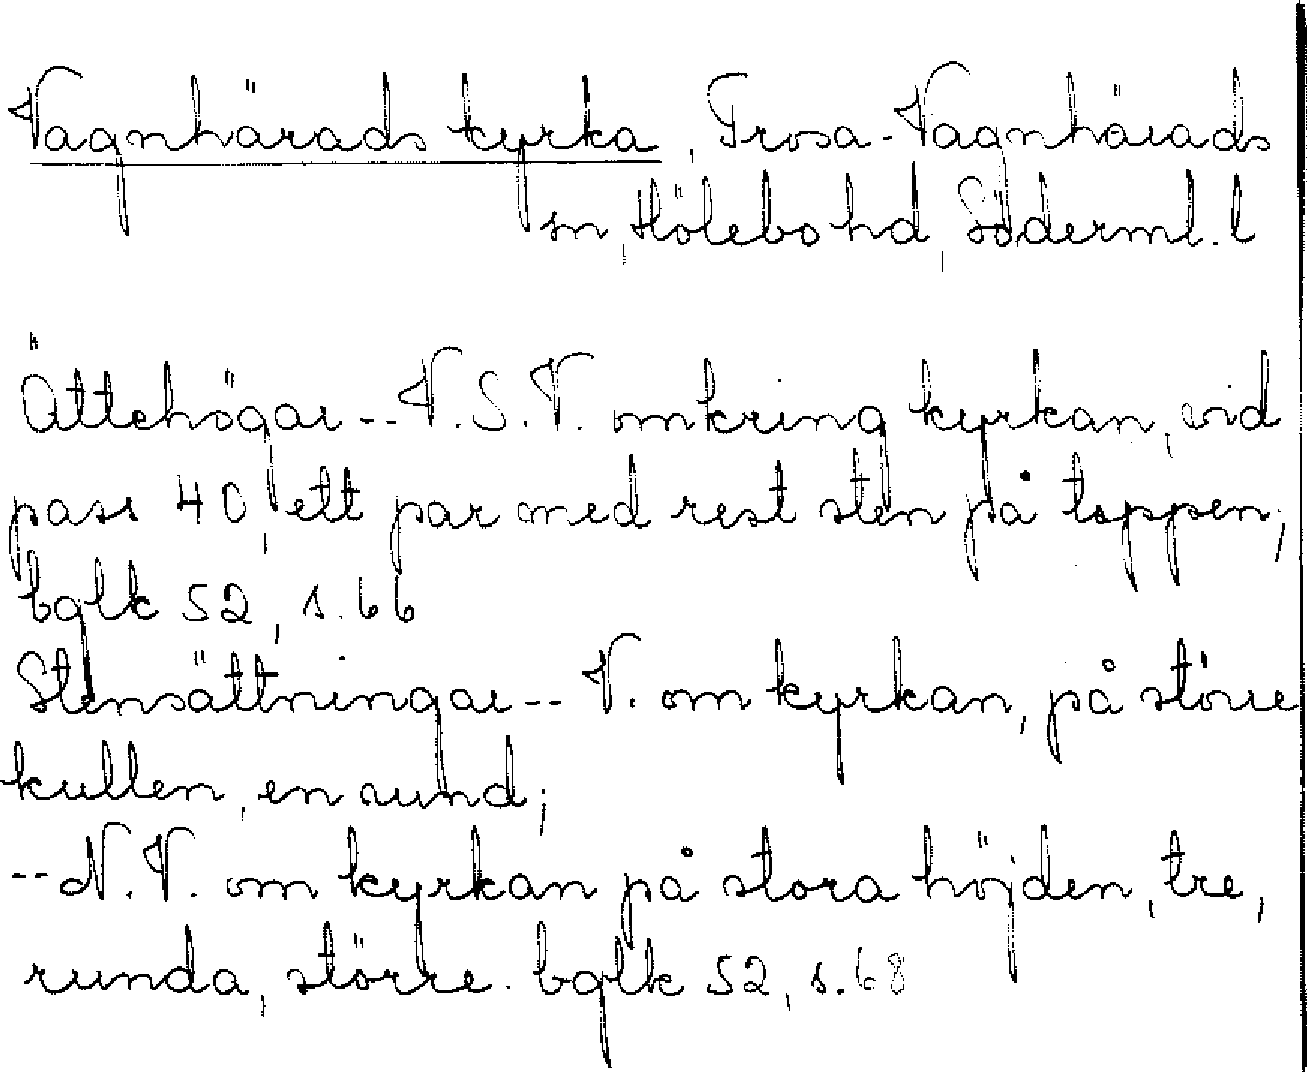 Vagnhärads kyrka, Trosa-Vagnhärads
sn, Hölebo hd, Söderml. l
Ättehögar -- V.S.V. omkring kyrkan, vid
pass 40, ett par med rest sten på toppen;
bglk 52, s. 66
Stensättningar -- V. om kyrkan, på större
kullen, en rund;
-- N.V. om kyrkan på stora höjden, tre,
runda, större. bglk 52, s. 68